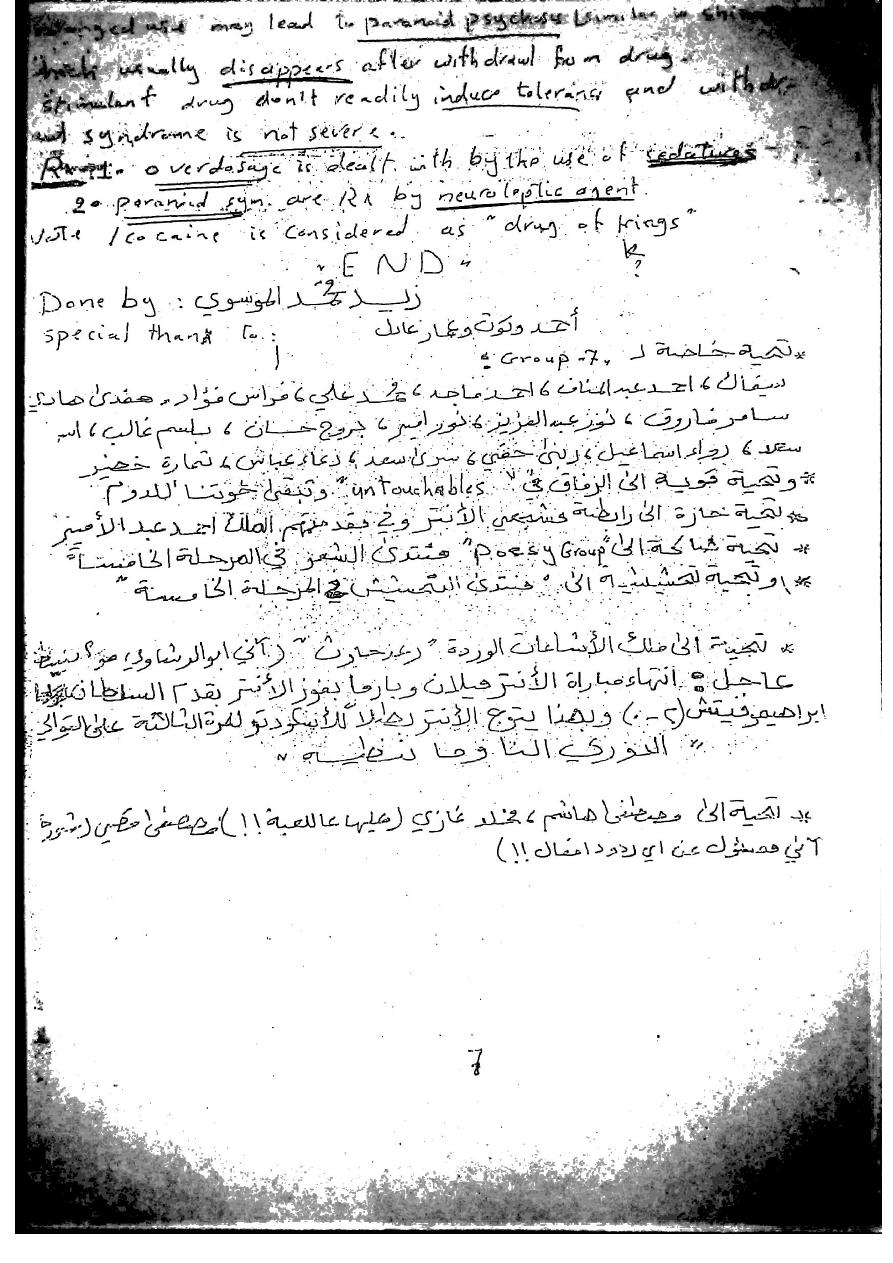 may lead to paranoid psychosis (similar to
which usually disappears after withdrawl from drug.
stimulant drug don't readily induce tolerance and withdr-
syndrome is not severe..
overdosage is dealt with by the use of sedatives
2. paranoid sym. are Rx by neuroleptic agent.
Note / cocaine is considered as "drug of kings"
k?
"END"
Done by : زيد محمد الموسوي
special thank to : أحمد وكوت وعمار عادل
* تحية خاصة لـ Group-7 :
سيفاك، احمد عبد المناف، احمد ماجد، محمد علي، فراس فؤاد، هادي
سامر فاروق، نور عبد العزيز، نور امير، جورج حسان، باسم غالب،
سعد، رواء اسماعيل، لبنى حقي، سرى سعد، دعاء عباس، تمارة خضير
* وتحية قوية الى الرفاق في "untouchables" وتبقى خوتنا للدوم
* تحية حارة الى رابطة مشجعي الأنتر وفي مقدمتهم الملك احمد عبد الأمير
* تحية الى "Poesy Group" منتدى الشعر في المرحلة الخامسة
* وتحية تحشيشية الى "منتدى التحشيش في المرحلة الخامسة"
* تحية الى ملك الأشاعات الوردة "رعد حارث" (آني ابو الرشاوي، مو؟
عاجل : انتهاء مباراة الأنتر ميلان وبارما بفوز الأنتر بقدم السلطان
ابراهيموفيتش (2-0) وبهذا يتوج الأنتر بطلاً للأسكوديتو للمرة الثالثة على التوالي
"الدوري النا وما ننطيه"
* تحية الى مصطفى هاشم، مخلد غازي (عاللعبة !!) ومصطفى
آني مسؤول عن اي ردود افعال !!)
7